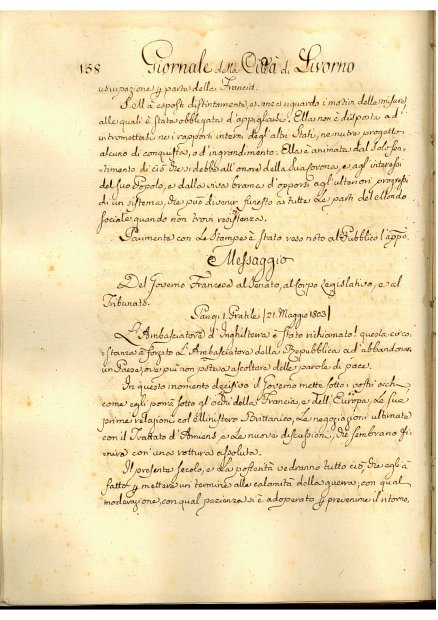 158 Giornale della Città di Livorno
usurpazione p parte della Francia.
S.M. à esposti distintamente, e senza riguardo i motivi delle misure,
alle quali è stata obbligata d'appigliarsi. Ella non è disposta ad
intromettersi nei rapporti interni degl'altri Stati, ne nutre progetto
alcuno di conquista, o d'ingrandimento. Ella è animata dal solo sen-
timento di ciò che si debbe all'onore della Sua Corona, e agl'interessi
del suo Popolo, e dalla viva brama d'opporsi agl'ulteriori progressi
di un sistema, che può divenir funesto a tutte le parti del Mondo
sociale quando non trovi resistenza.
Parimente con le Stampe è stato reso noto al Pubblico l'appo
Messaggio
Del Governo Francese al Senato, al Corpo Legislativo, e al
Tribunato.
Parigi 1. Pratile [21. Maggio 1803]
L'Ambasciatore d'Inghilterra è stato richiamato: questa circo-
stanza à forzato L'Ambasciatore della Repubblica ad abbandonar
un Paese, ove più non poteva ascoltare delle parole di pace.
In questo momento decisivo il Governo mette sotto i vostri occhi,
come egli porrà sotto gl'occhi della Francia, e dell'Europa, Le sue
prime relazioni col Ministero Brittanico, Le negoziazioni ultimate
con il Trattato d'Amiens, e Le nuove discussioni, che sembrano fi-
nirsi con una rottura assoluta.
Il presente secolo, e La posterità vedranno tutto ciò, che egli à
fatto p mettere un termine alle calamità della guerra; con qual
moderazione, con qual pazienza si è adoperato p prevenirne il ritorno.